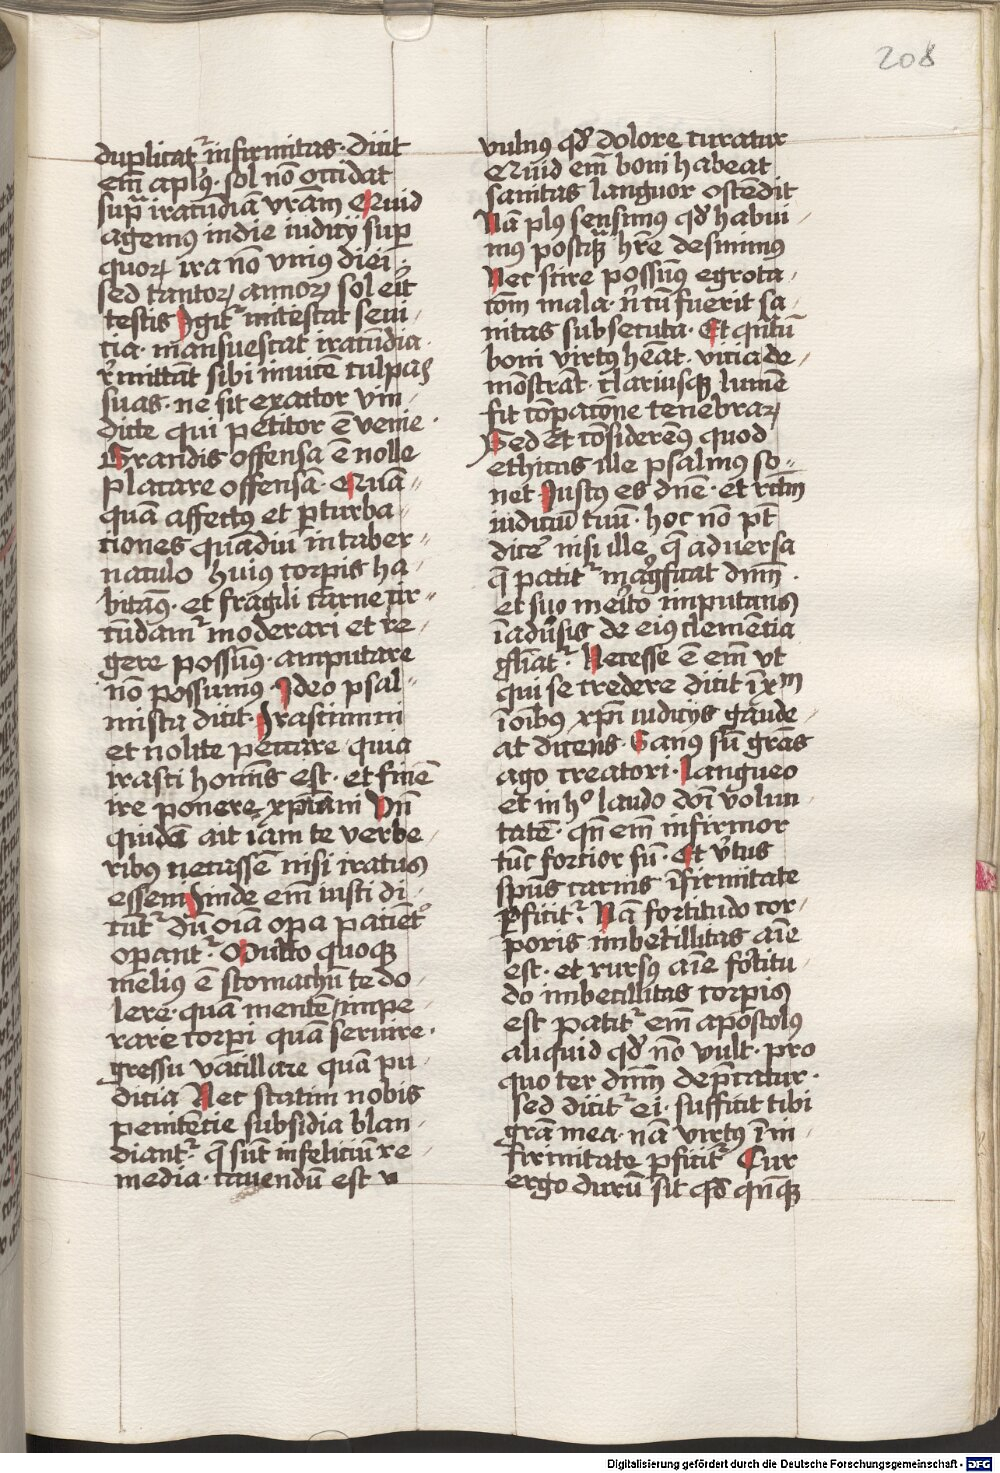 208
duplicat᷑ infirmitas · dicit
em̄ apl's · sol nō occidat
sup̄ iracūdiā vrām Quid
agemus in die iudicij sup
quoꝝ ira nō vnius diei ·
sed tantoꝝ annoꝝ sol eit
testis Igit᷑ mitescat sevi
cia · mansuescat iracūdia ·
r̓mittāt sibi invicē culpas
suas · ne sit exactor vin
dicte qui petitor ē venie ·
Grandis offensa ē nolle
placare offensā · Quā
quā affectꝰ et p̄turba
ciones quādiu in taber
naculo huiꝰ corpis ha
bitamꝰ · et fragili carne cir
cūdam᷑ moderari et re
gere possumꝰ · amputare
nō possumus · Ideo psal
mista dicit · Irascimini
et nolite peccare quia
irasci hoīnis est · et finē
ire ponere xp̄iani Vn̄
quidā ait iam te verbe
ribus necassē nisi iratus
essem Vnde em̄ iusti di
cūt᷑ dū oīa opa paciēt᷑
opant᷑ · Multo quoqꝫ
meliꝰ ē stomachū te do
lere · quā mentem impe
rare corpi quā servire ·
gressu vacillare quā pu
dicia Nec statim nobis
penitēcie subsidia blan
diant᷑ · q̄ sūt infeliciū re
media · cavendū est v
vulnꝰ qd̓ dolore curatur
Quid em̄ boni habeat
sanitas languor ostēdit
Nā plꝰ sensimus qd̓ habui
mus postqꝫ hr̄e desinimus
Nec scire possumꝰ egrota
cōm mala · n̄ cū fuerit sa
nitas subsecuta · Et q̄ntū
boni virtꝰ hēat · vicia de
mōstrāt · clariusqꝫ lumē
fit cōpacōne tenebraꝝ
Sed et cōsideremꝰ quod
ethicus ille psalmus so
net Iustꝰ es dnē · et rctm̄
iudiciū tuū · hoc nō pt̄
dicē nisi ille, q̄ adversa
q̄ patit᷑ mag̓ficat dnm̄ ·
et suo merito imputans
ī adūsis de eiꝰ clemēcia
gl̄iat᷑ · Necesse ē em̄ vt
qui se credere dicit ī xm̄
ī oībus xp̄i iudicijs gaude
at dicens · Sanꝰ sū grās
ago creatori · Langueo
et in hᵒ laudo dōi volun
tatē · qn̄ em̄ infirmor
tūc forcior sū · Et v̓tus
spūs carnis īfirmitate
p̄ficit᷑ · Nā fortitudo cor
poris imbecillitas aīe
est · et rursꝰ aīe fortitu
do imbecillitas corpis
est patit᷑ em̄ apostolꝰ
aliquid qd̓ nō vult · pro
quo ter dnm̄ dep̄catur ·
sed dicit᷑ ei · sufficit tibi
grā mea · nā virtꝰ ī in
firmitate p̄ficit᷑ Cur
ergo durū sit qd̓ qn̄qꝫ
Digitalisierung gefördert durch die Deutsche Forschungsgemeinschaft - DFG